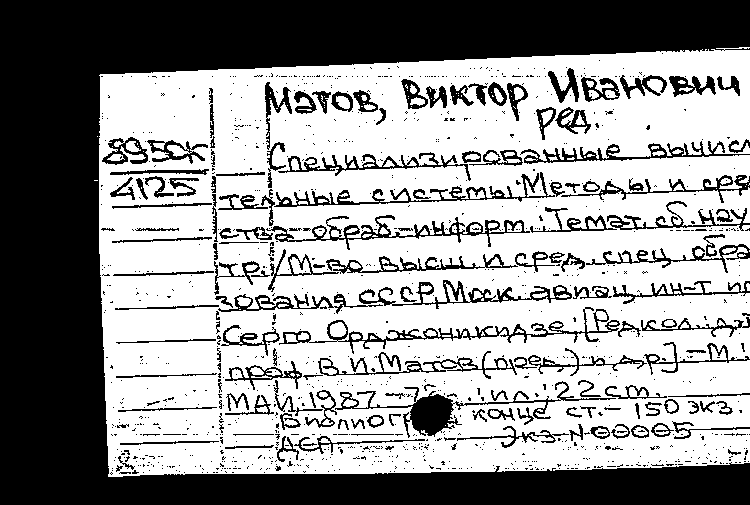 Матов, Виктор Иванович
ред.
895СК
4125
Специализированные вычисл
тельные системы: Методы и сред
ства обраб. информ.: Темат. сб. науч
тр./М-во высш. и сред. спец. обра
зования СССР, Моск. авиац. ин-т
Серго Орджоникидзе; [Редкол.:
проф. В.И.Матов (пред.) и др.] - М.:
МАИ, 1987. - с.: ил.; 22 cm.
Библиогр конце ст. - 150 экз.
ДСП. Экз. N 00005.